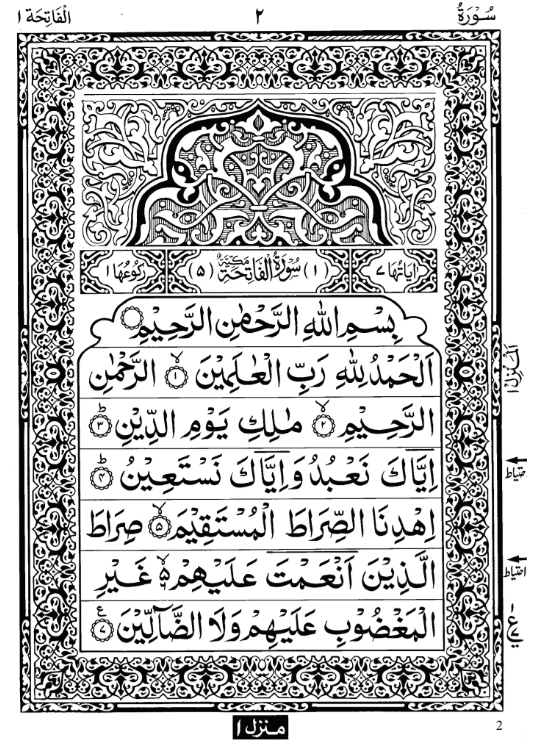 سُوْرَةُ ٢ الْفَاتِحَة ١
اٰيَاتُهَا ٧ (١) سُوْرَةُ الْفَاتِحَةِ مَكِّيَّةٌ (٥) رُكُوْعُهَا ١
بِسْمِ اللّٰهِ الرَّحْمٰنِ الرَّحِيْمِ
اَلْحَمْدُ لِلّٰهِ رَبِّ الْعٰلَمِيْنَ ۙ﴿١﴾ الرَّحْمٰنِ
الرَّحِيْمِ ۙ﴿٢﴾ مٰلِكِ يَوْمِ الدِّيْنِ ؕ﴿٣﴾
اِيَّاكَ نَعْبُدُ وَاِيَّاكَ نَسْتَعِيْنُ ؕ﴿٤﴾
اِهْدِنَا الصِّرَاطَ الْمُسْتَقِيْمَ ۙ﴿٥﴾ صِرَاطَ
الَّذِيْنَ اَنْعَمْتَ عَلَيْهِمْ ۙ۵ غَيْرِ
الْمَغْضُوْبِ عَلَيْهِمْ وَلَا الضَّآلِّيْنَ ﴿٧﴾ ع
اَلْمَنْزِل ١
احتیاط
احتیاط
ع
منزل ١
2